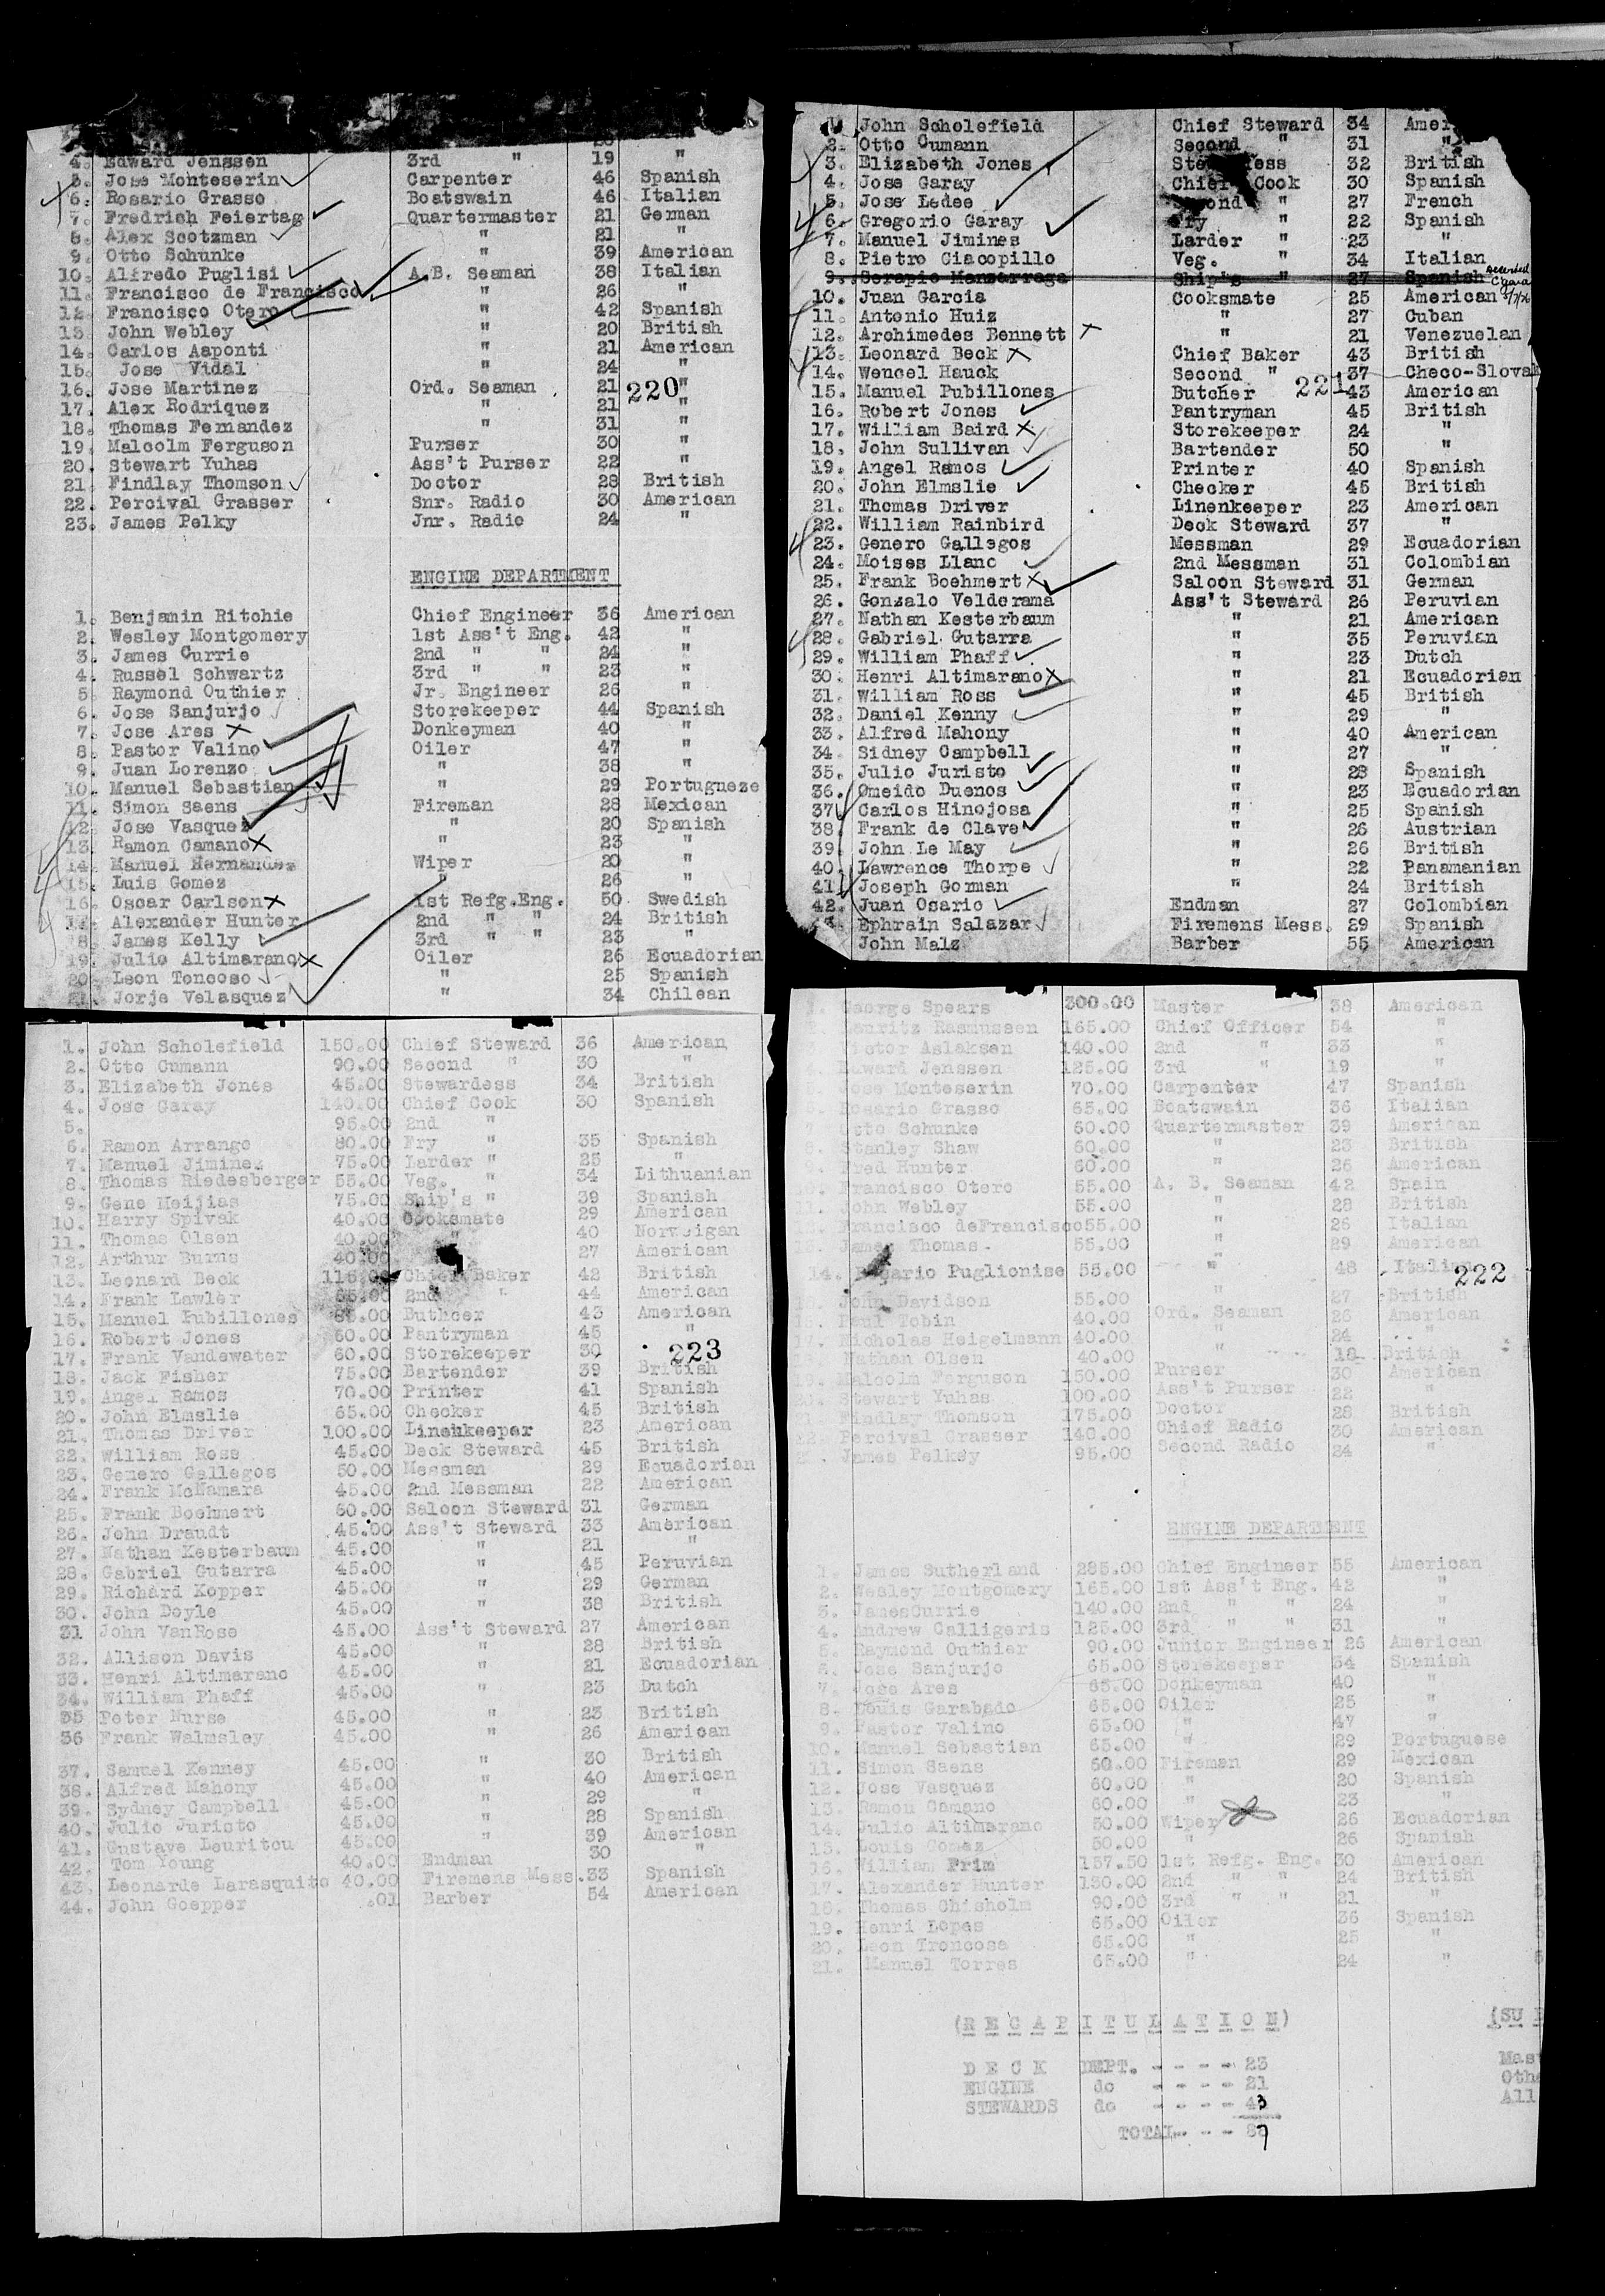 4. Edward Jenssen 3rd " 19 "
5. Jose Monteserin Carpenter 46 Spanish
6. Rosario Grasso Boatswain 46 Italian
7. Fredrich Feiertag Quartermaster 21 German
8. Alex Scotzman " 21 "
9. Otto Schunke " 39 American
10. Alfredo Puglisi A.B. Seaman 38 Italian
11. Francisco de Francisco " 26 "
12. Francisco Otero " 42 Spanish
13. John Webley " 20 British
14. Carlos Aaponti " 21 American
15. Jose Vidal " 24 "
16. Jose Martinez Ord. Seaman 21 "
220
17. Alex Rodriquez " 21 "
18. Thomas Fernandez " 31 "
19. Malcolm Ferguson Purser 30 "
20. Stewart Yuhas Ass't Purser 22 "
21. Findlay Thomson Doctor 28 British
22. Percival Grasser Snr. Radio 30 American
23. James Pelky Jnr. Radio 24 "
ENGINE DEPARTMENT
1. Benjamin Ritchie Chief Engineer 36 American
2. Wesley Montgomery 1st Ass't Eng. 42 "
3. James Currie 2nd " " 24 "
4. Russel Schwartz 3rd " " 23 "
5. Raymond Outhier Jr. Engineer 26 "
6. Jose Sanjurjo Storekeeper 44 Spanish
7. Jose Ares Donkeyman 40 "
8. Pastor Valino Oiler 47 "
9. Juan Lorenzo " 38 "
10. Manuel Sebastian " 29 Portugueze
11. Simon Saens Fireman 28 Mexican
12. Jose Vasquez " 20 Spanish
13. Ramon Camano " 23 "
14. Manuel Hernandez Wiper 20 "
15. Luis Gomez " 26 "
16. Oscar Carlson 1st Refg.Eng. 50 Swedish
17. Alexander Hunter 2nd " " 24 British
18. James Kelly 3rd " " 23 "
19. Julio Altimarano Oiler 26 Ecuadorian
20. Leon Toncoso " 25 Spanish
21. Jorje Velasquez " 34 Chilean
1. John Scholefield Chief Steward 34 Amer
2. Otto Cumann Second " 31 "
3. Elizabeth Jones 32 British
4. Jose Garay Chief Cook 30 Spanish
5. Jose Ledee " 27 French
6. Gregorio Garay Fry " 22 Spanish
7. Manuel Jimines Larder " 23 "
8. Pietro Ciacopillo Veg. " 34 Italian
9. Serapio Manzarraga Ship's " 27 Spanish
10. Juan Garcia Cooksmate 25 American
11. Antonio Huiz " 27 Cuban
12. Archimedes Bennett " 21 Venezuelan
13. Leonard Beck Chief Baker 43 British
14. Wencel Hauck Second " 37 Checo-Slovak
221
15. Manuel Pubillones Butcher 43 American
16. Robert Jones Pantryman 45 British
17. William Baird Storekeeper 24 "
18. John Sullivan Bartender 50 "
19. Angel Ramos Printer 40 Spanish
20. John Elmslie Checker 45 British
21. Thomas Driver Linenkeeper 23 American
22. William Rainbird Deck Steward 37 "
23. Genero Gallegos Messman 29 Ecuadorian
24. Moises Llano 2nd Messman 31 Colombian
25. Frank Boehmert Saloon Steward 31 German
26. Gonzalo Velderama Ass't Steward 26 Peruvian
27. Nathan Kesterbaum " 21 American
28. Gabriel Gutarra " 35 Peruvian
29. William Phaff " 23 Dutch
30. Henri Altimarano " 21 Ecuadorian
31. William Ross " 45 British
32. Daniel Kenny " 29 "
33. Alfred Mahony " 40 American
34. Sidney Campbell " 27 "
35. Julio Juristo " 28 Spanish
36. Omeido Duenos " 23 Ecuadorian
37. Carlos Hinojosa " 25 Spanish
38. Frank de Clave " 26 Austrian
39. John Le May " 26 British
40. Lawrence Thorpe " 22 Panamanian
41. Joseph Gozman " 24 British
42. Juan Osario Endman 27 Colombian
Ephrain Salazar Firemens Mess. 29 Spanish
John Malz Barber 55 American
1. John Scholefield 150.00 Chief Steward 36 American
2. Otto Cumann 90.00 Second " 30 "
3. Elizabeth Jones 45.00 Stewardess 34 British
4. Jose Garay 140.00 Chief Cook 30 Spanish
5. 95.00 2nd "
6. Ramon Arrango 80.00 Fry " 35 Spanish
7. Manuel Jiminez 75.00 Larder " 25 "
8. Thomas Riedesberger 55.00 Veg. " 34 Lithuanian
9. Gene Meijias 75.00 Ship's " 39 Spanish
10. Harry Spivak 40.00 Cooksmate 29 American
11. Thomas Olsen 40.00 40 Norweigan
12. Arthur Burns 40.00 27 American
13. Leonard Beck 115.00 Chief Baker 42 British
14. Frank Lawler 2nd " 44 American
15. Manuel Pubillones Buthcer 43 American
16. Robert Jones 60.00 Pantryman 45 "
223
17. Frank Vandewater 60.00 Storekeeper 30
18. Jack Fisher 75.00 Bartender 39 British
19. Angel Ramos 70.00 Printer 41 Spanish
20. John Elmslie 65.00 Checker 45 British
21. Thomas Driver 100.00 Linenkeeper 23 American
22. William Ross 45.00 Deck Steward 45 British
23. Genero Gallegos 50.00 Messman 29 Ecuadorian
24. Frank McNamara 45.00 2nd Messman 22 American
25. Frank Boehmert 60.00 Saloon Steward 31 German
26. John Draudt 45.00 Ass't Steward 33 American
27. Nathan Kesterbaum 45.00 " 21 "
28. Gabriel Gutarra 45.00 " 45 Peruvian
29. Richard Kopper 45.00 " 29 German
30. John Doyle 45.00 " 38 British
31 John VanRose 45.00 Ass't Steward 27 American
32. Allison Davis 45.00 " 28 British
33. Henri Altimarano 45.00 " 21 Ecuadorian
34. William Phaff 45.00 " 23 Dutch
35 Peter Nurse 45.00 " 23 British
36 Frank Walmsley 45.00 " 26 American
37. Samuel Kenney 45.00 " 30 British
38. Alfred Mahony 45.00 " 40 American
39. Sydney Campbell 45.00 " 29 "
40. Julio Juristo 45.00 " 28 Spanish
41. Gustave Leuritou 45.00 " 39 American
42. Tom Young 40.00 Endman 30 "
43. Leonarde Larasquito 40.00 Firemens Mess. 33 Spanish
44. John Goepper .01 Barber 54 American
1. George Spears 300.00 Master 38 American
Lauritz Rasmussen 165.00 Chief Officer 54 "
Victor Aslaksen 140.00 2nd " 33 "
4. Edward Jenssen 125.00 3rd " 19 "
Jose Monteserin 70.00 Carpenter 47 Spanish
6. Rosario Grasso 65.00 Boatswain 36 Italian
7. Otto Schunke 60.00 Quartermaster 39 American
8. Stanley Shaw 60.00 " 23 British
9. Fred Hunter 60.00 " 26 American
10. Francisco Otero 55.00 A. B. Seaman 42 Spain
John Webley 55.00 " 28 British
Francisco deFrancisco 55.00 " 26 Italian
James Thomas. 55.00 " 29 American
14. Rosario Puglionise 55.00 " 48 Italian
222
John Davidson 55.00 " 27 British
Paul Tobin 40.00 Ord. Seaman 26 American
17. Nicholas Heigelmann 40.00 " 24 "
Nathan Olsen 40.00 " 18 British
19. Malcolm Ferguson 150.00 Purser 30 American
20. Stewart Yuhas 100.00 Ass't Purser 22 "
21 Findlay Thomson 175.00 Doctor 28 British
22 Percival Grasser 140.00 Chief Radio 30 American
James Pelkey 95.00 Second Radio 24 "
ENGINE DEPARTMENT
1. James Sutherland 285.00 Chief Engineer 55 American
2. Wesley Montgomery 165.00 1st Ass't Eng. 42 "
3. JamesCurrie 140.00 2nd " " 24 "
4. Andrew Calligeris 125.00 3rd " " 31 "
5. Raymond Outhier 90.00 Junior Engineer 26 American
6. Jose Sanjurjo 65.00 Storekeeper 34 Spanish
7. Jose Ares 65.00 Donkeyman 40 "
8. Louis Garabado 65.00 Oiler 25 "
9. Pastor Valino 65.00 " 47 "
10. Manuel Sebastian 65.00 " 29 Portuguese
11. Simon Saens 60.00 Fireman 29 Mexican
12. Jose Vasquez 60.00 " 20 Spanish
13. Ramon Camano 60.00 " 23 "
14. Julio Altimarano 50.00 Wiper 26 Ecuadorian
15. Louis Gomez 50.00 " 26 Spanish
16. William Prim 157.50 1st Refg. Eng. 30 American
17. Alexander Hunter 130.00 2nd " " 24 British
18. Thomas Chisholm 90.00 3rd " " 21 "
19. Henri Lopes 65.00 Oiler 36 Spanish
20. Leon Troncosa 65.00 " 25 "
21. Manuel Torres 65.00 " 24 "
(RECAPITULATION) (SU
DECK DEPT. - - - - 23 Mas
ENGINE do - - - - 21 Oth
STEWARDS do - - - - 43 All
TOTAL- - - 87